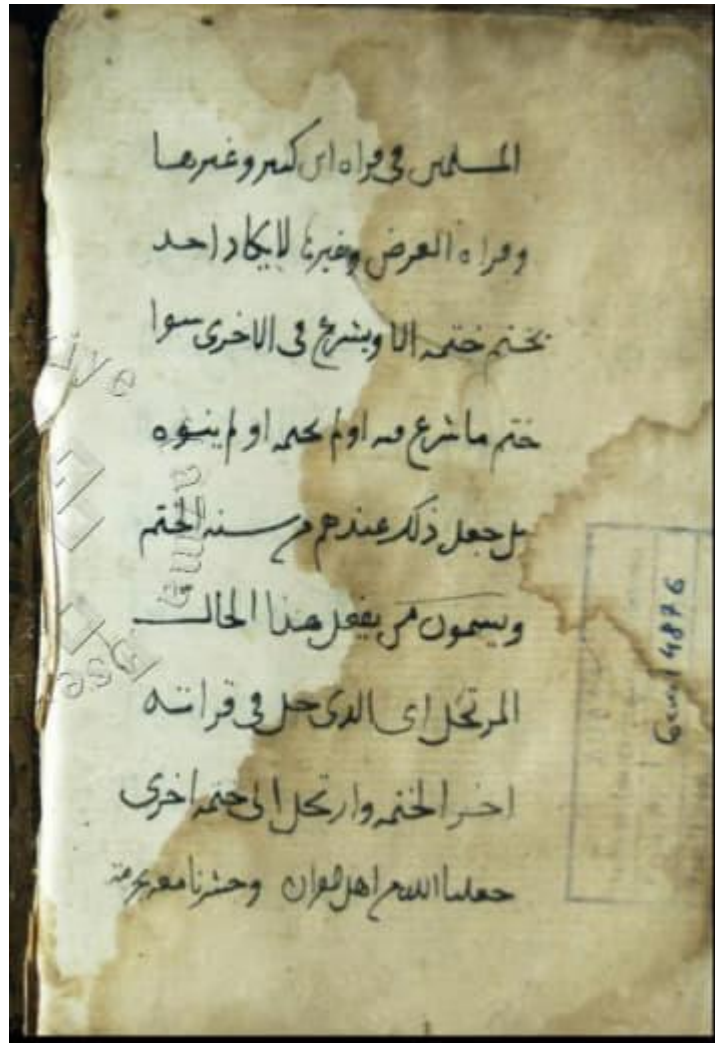 المسلمين في قراة ابن كثير وغيرها
وقراة العرض وغيرها لايكاد احد
يختم ختمه الا ويشرع في الاخرى سوا
ختم ما شرع فيه اولم يختمه او لم ينوه
بل جعل ذلك عندهم من سنة الختم
ويسمون من يفعل هذا الحال
المرتحل اى الذى حل في قراته
اخر الختمه وارتحل الى ختمه اخرى
جعلنا الله من اهل القران وحشرنا معهم
Genel 4876